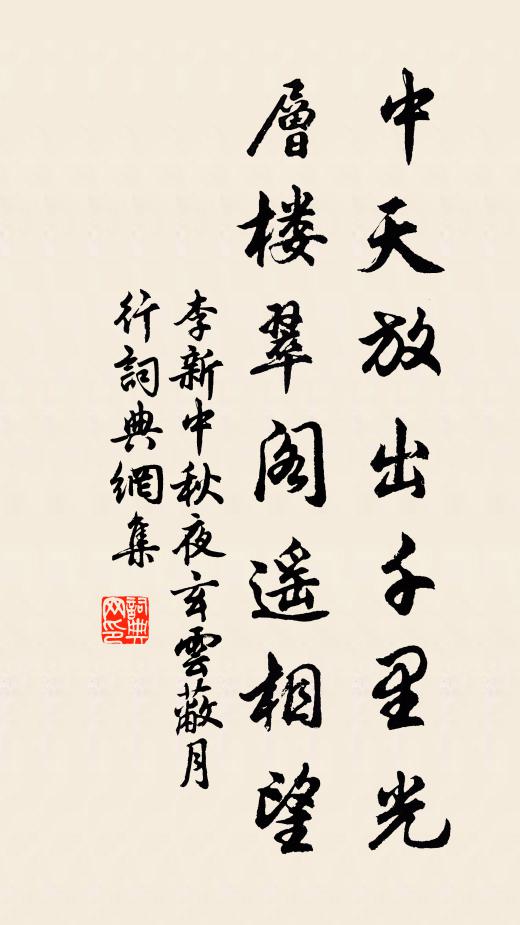 中天放出千里光
層楼翠阁遥相望
李新中秋夜玄雲蔽月
行詞典網集
詞典网印